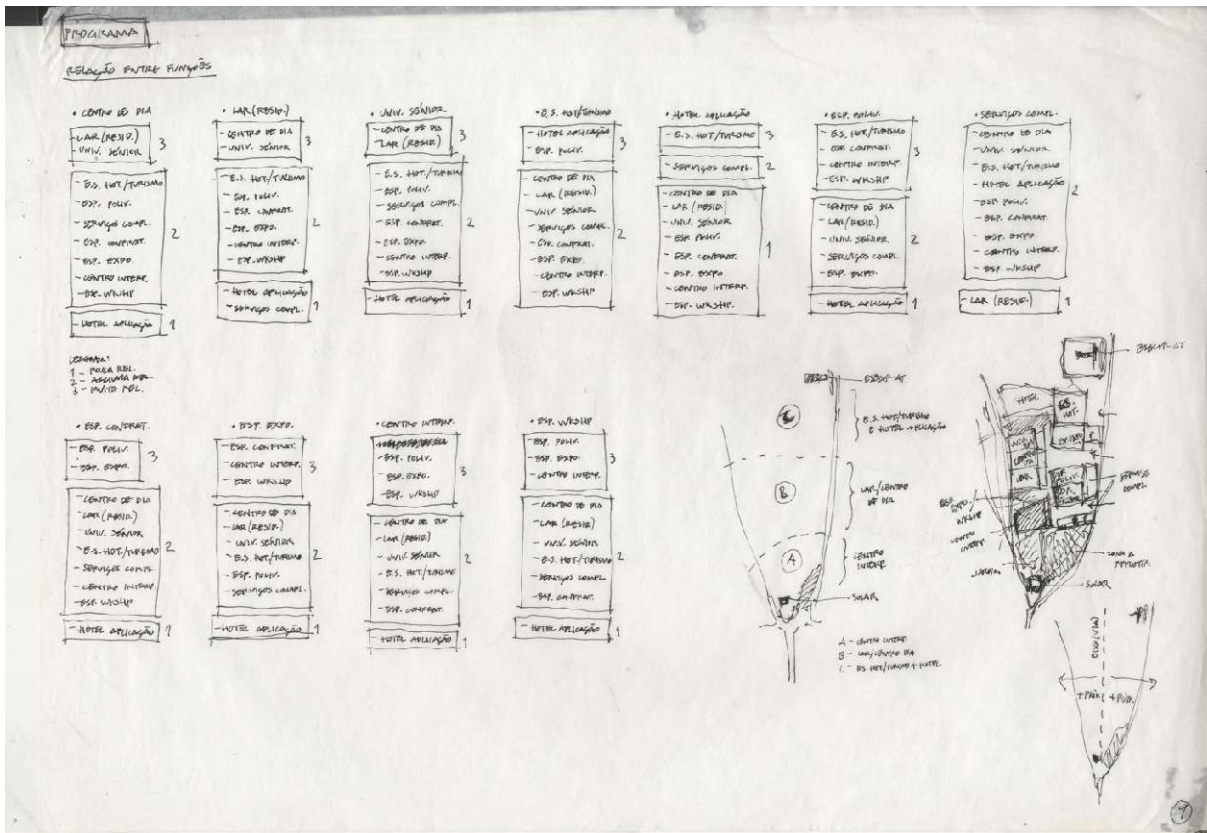 PROGRAMA
RELAÇÃO ENTRE FUNÇÕES
• CENTRO DE DIA
- LAR (RESID.)
- UNIV. SÉNIOR
3
- E.S. HOT/TURISMO
- ESP. POLIV.
- SERVIÇOS COMPL.
- ESP. CONFRAT.
- ESP. EXPO.
- CENTRO INTERP.
- ESP. WKSHP
2
- HOTEL APLICAÇÃO 1
• LAR (RESID.)
- CENTRO DE DIA
- UNIV. SÉNIOR
3
- E.S. HOT/TURISMO
- ESP. POLIV.
- ESP. CONFRAT.
- ESP. EXPO.
- CENTRO INTERP.
- ESP. WKSHP
2
- HOTEL APLICAÇÃO
- SERVIÇOS COMPL.
1
• UNIV. SÉNIOR
- CENTRO DE DIA
- LAR (RESID)
3
- E.S. HOT/TURISMO
- ESP. POLIV.
- SERVIÇOS COMPL.
- ESP. CONFRAT.
- ESP. EXPO.
- CENTRO INTERP.
- ESP. WKSHP
2
- HOTEL APLICAÇÃO 1
• E.S. HOT/TURISMO
- HOTEL APLICAÇÃO
- ESP. POLIV.
3
- CENTRO DE DIA
- LAR (RESID.)
- UNIV SÉNIOR
- SERVIÇOS COMPL.
- ESP. CONFRAT.
- ESP. EXPO.
- CENTRO INTERP.
- ESP. WKSHP
2
• HOTEL APLICAÇÃO
- E.S. HOT/TURISMO 3
- SERVIÇOS COMPL. 2
- CENTRO DE DIA
- LAR (RESID.)
- UNIV. SÉNIOR
- ESP. POLIV.
- ESP. CONFRAT.
- ESP. EXPO
- CENTRO INTERP.
- ESP. WKSHP.
1
• ESP. POLIV.
- E.S. HOT/TURISMO
- ESP. CONFRAT.
- CENTRO INTERP.
- ESP. WKSHP
3
- CENTRO DE DIA
- LAR (RESID.)
- UNIV. SÉNIOR
- SERVIÇOS COMPL.
- ESP. EXPO.
2
- HOTEL APLICAÇÃO 1
• SERVIÇOS COMPL.
- CENTRO DE DIA
- UNIV. SÉNIOR
- E.S. HOT/TURISMO
- HOTEL APLICAÇÃO
- ESP. POLIV.
- ESP. CONFRAT
- ESP. EXPO
- CENTRO INTERP.
- ESP. WKSHP
2
- LAR (RESID.) 1
LEGENDA:
1 - POUCA REL.
2 - ALGUMA REL.
3 - MUITA REL.
• ESP. CONFRAT.
- ESP. POLIV.
- ESP. EXPO.
3
- CENTRO DE DIA
- LAR (RESID.)
- UNIV. SÉNIOR
- E.S. HOT/TURISMO
- SERVIÇOS COMPL.
- CENTRO INTERP.
- ESP. WKSHP
2
- HOTEL APLICAÇÃO 1
• ESP. EXPO.
- ESP. CONFRAT.
- CENTRO INTERP.
- ESP. WKSHP
3
- CENTRO DE DIA
- LAR (RESID.)
- UNIV. SÉNIOR
- E.S. HOT/TURISMO
- ESP. POLIV.
- SERVIÇOS COMPL.
2
- HOTEL APLICAÇÃO 1
• CENTRO INTERP.
- ESP. POLIV.
- ESP. EXPO.
- ESP. WKSHP
3
- CENTRO DE DIA
- LAR (RESID)
- UNIV. SÉNIOR
- E.S. HOT/TURISMO
- SERVIÇOS COMPL.
- ESP. CONFRAT.
2
- HOTEL APLICAÇÃO 1
• ESP. WKSHP
- ESP. POLIV.
- ESP. EXPO.
- CENTRO INTERP.
3
- CENTRO DE DIA
- LAR (RESID)
- UNIV. SÉNIOR
- E.S. HOT/TURISMO
- SERVIÇOS COMPL.
- ESP. CONFRAT.
2
- HOTEL APLICAÇÃO 1
C
E.S. HOT/TURISMO
E HOTEL APLICAÇÃO
B
LAR/CENTRO
DE DIA
A
CENTRO
INTERP.
SOLAR
A - CENTRO INTERP
B - LAR/CENTRO DIA
C - ES HOT/TURISMO + HOTEL.
HOTEL
E.S.
HOT.
LAR
SERVIÇOS
COMPL
ESP. EXPO.
WKSHP
CENTRO
INTERP
JARDIM
ZONA A
SOLAR
EIXO (VIA)
+ PRIV. + PUB.
9